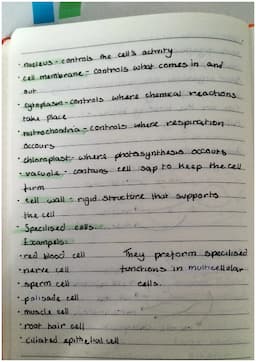 • nucleus - controls the cell's activity
• cell membrane - controls what comes in and
out
• cytoplasm - controls where chemical reactions
take place
• mitrochondria - controls where respiration
occours
• chloroplast - where photosynthesis occours
• vacuole - contains cell sap to keep the cell
firm
• cell wall - rigid structure that supports
the cell
• Specilised cells.
Exampels:
• red blood cell
• nerve cell
• sperm cell
• palisade cell
• muscle cell
• root hair cell
• ciliated epithelial cell
They preform specilised
functions in multicellular
cells.